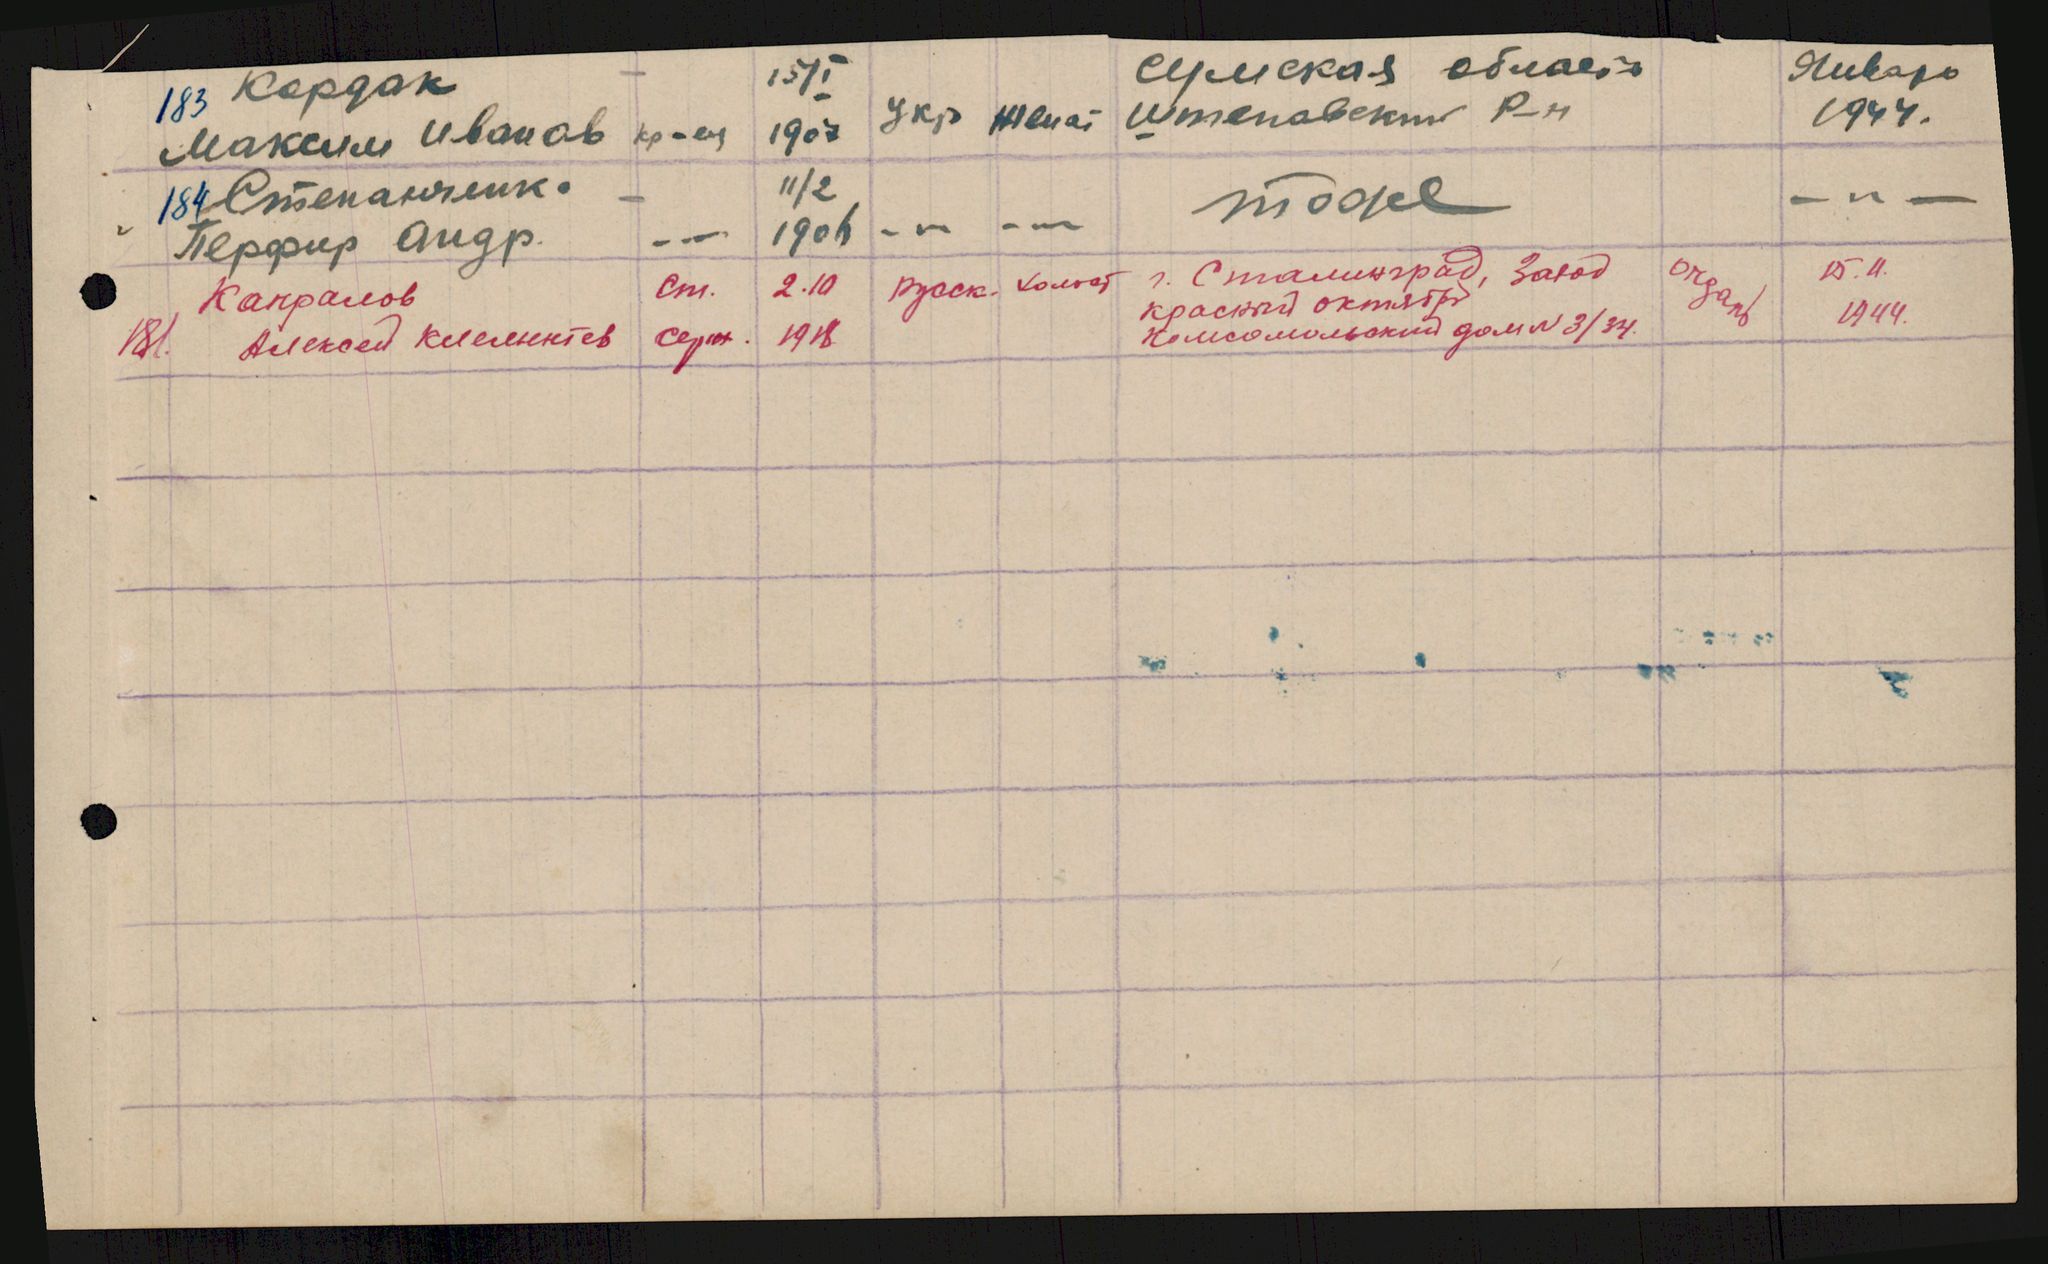 183 Кордак — 15/I Сумская область Январь
Максим Иванов кр-ец 1907 Укр Женат Штеповский Р-н 1944.
184 Степанченк. — 11/2 тоже — " —
Перфир Андр. — " — 1906 — " — — " —
Капралов Ст. 2.10 Русск. холост г. Сталинград, Завод 15.II.
Красный октябрь
181. Алексей Клементев Серж. 1918 Комсомольский дом N 3/34. 1944.